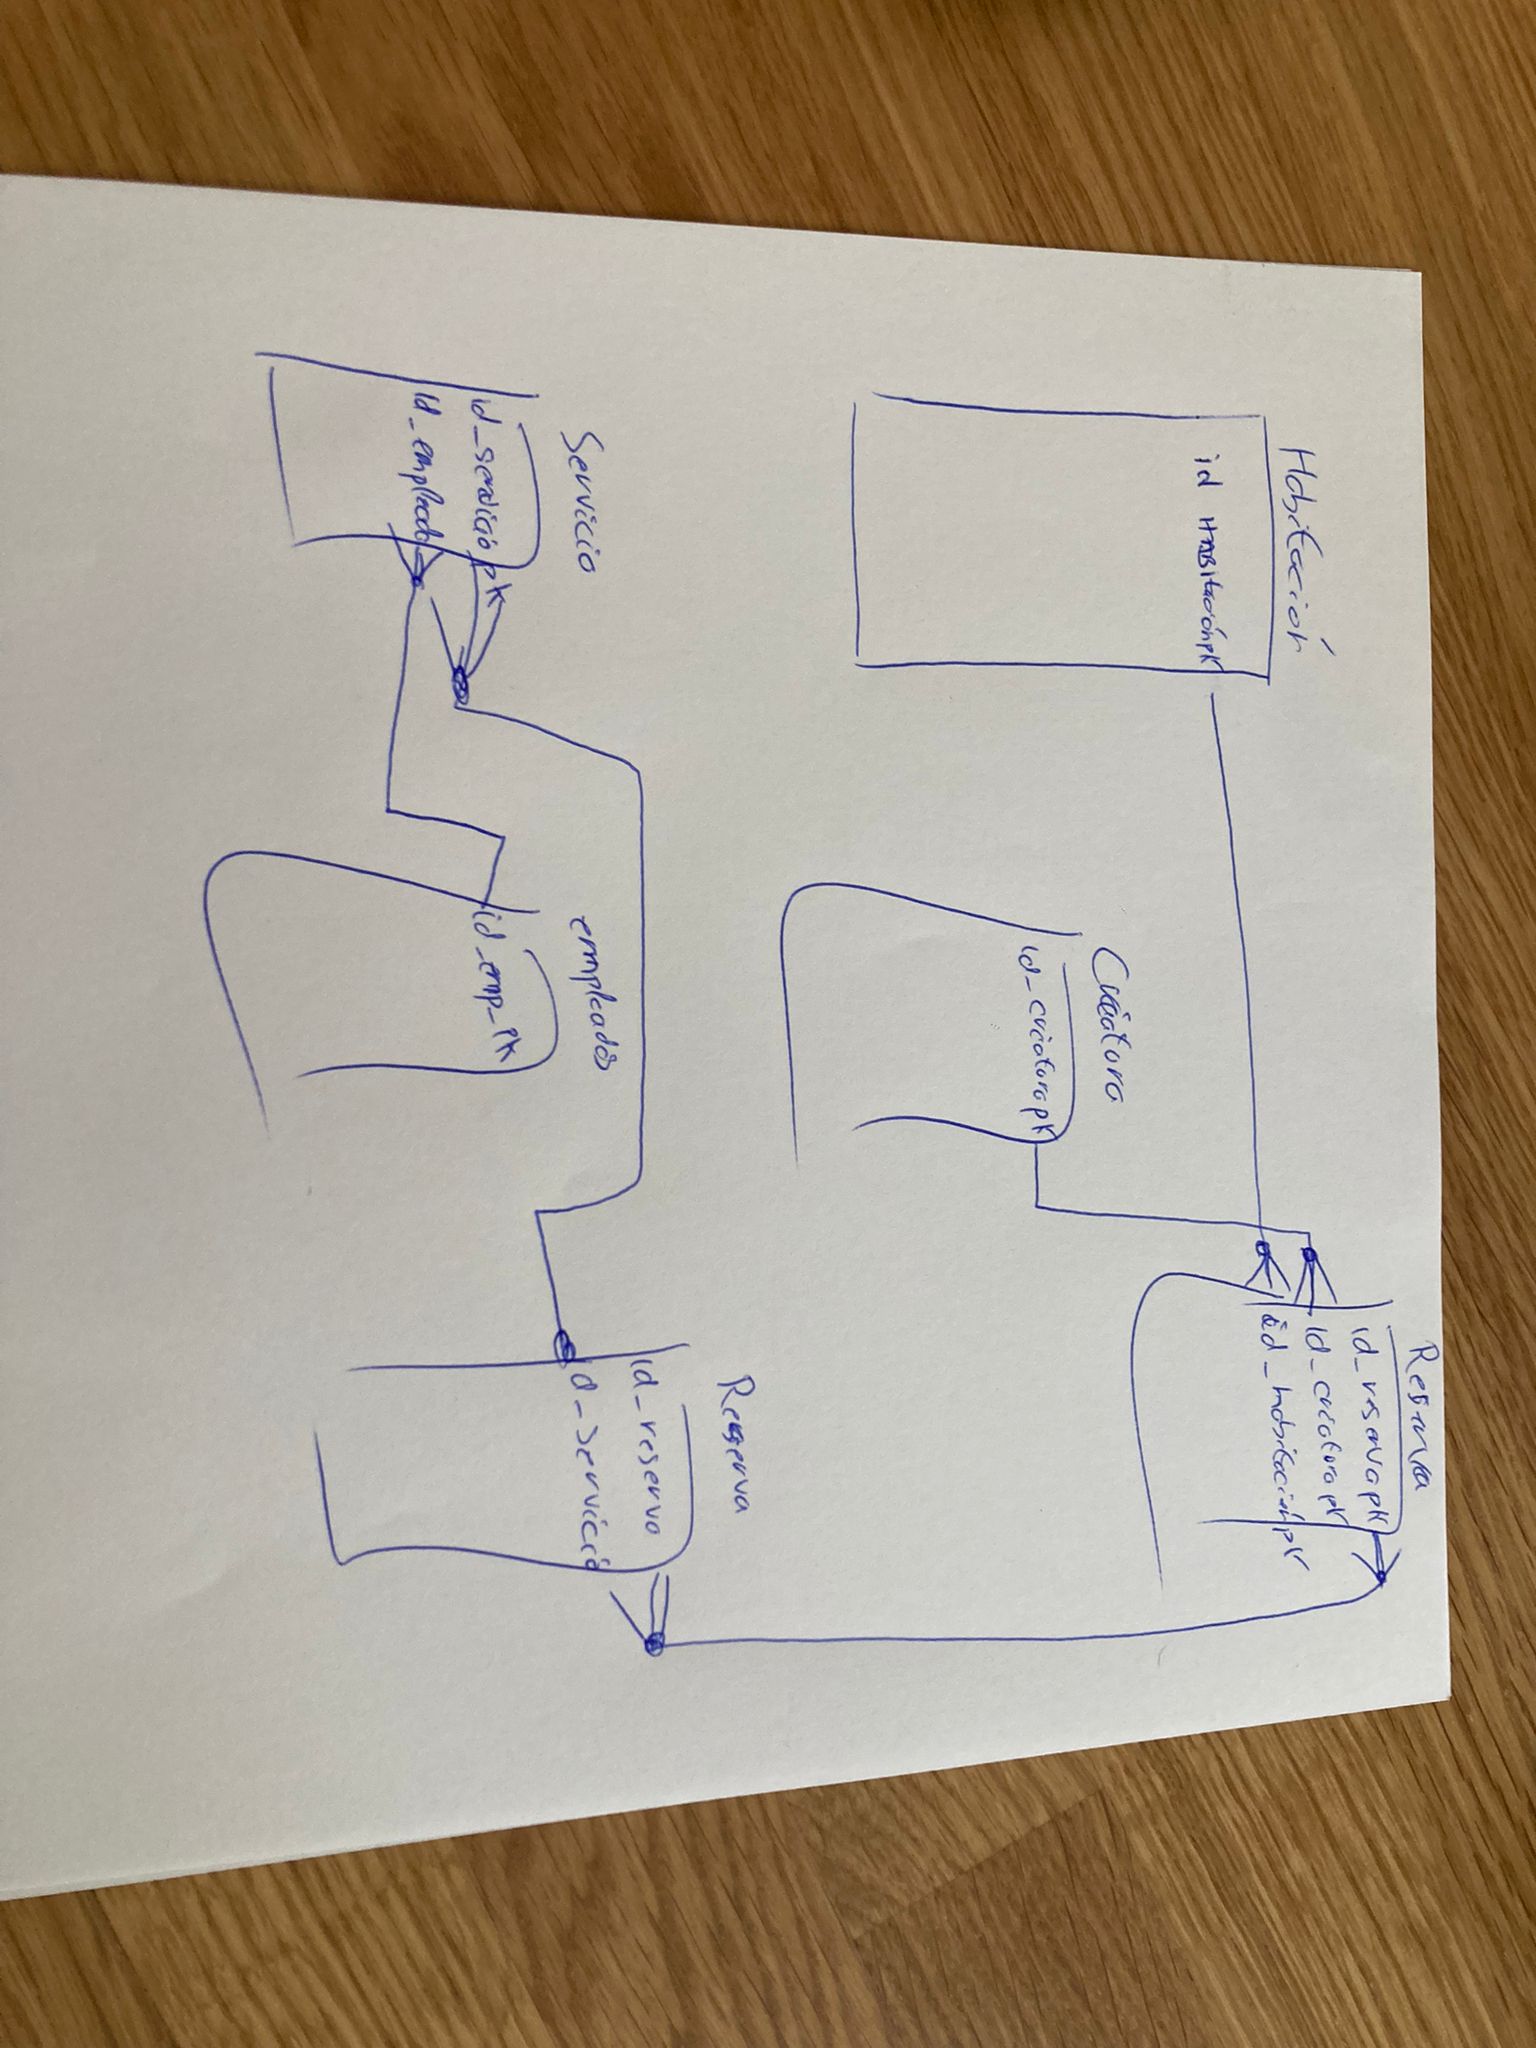 Habitación
id HABitaciónpk
Criatura
id_criaturapk
Reserva
id_reservapk
id_criaturapk
id_habitaciónpk
Servicio
id_serviciopk
id_empleado
empleados
id_emp_pk
Reserva
id_reserva
id_servicio